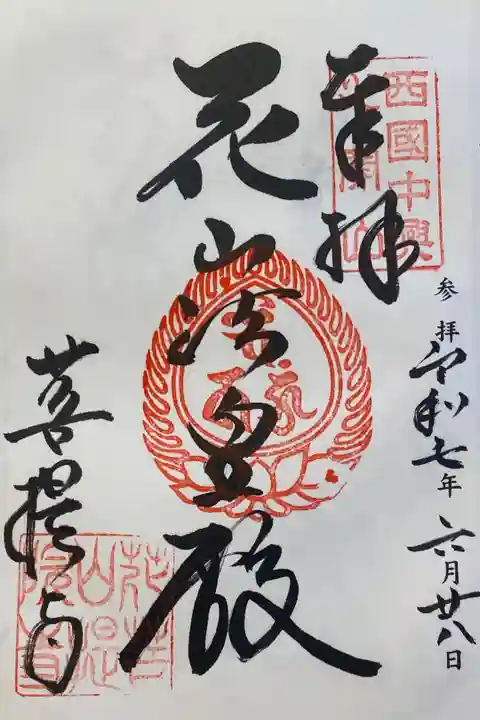 参拝 令和七年 六月廿八日
奉拝
西國中興
花山法皇殿
菩提寺